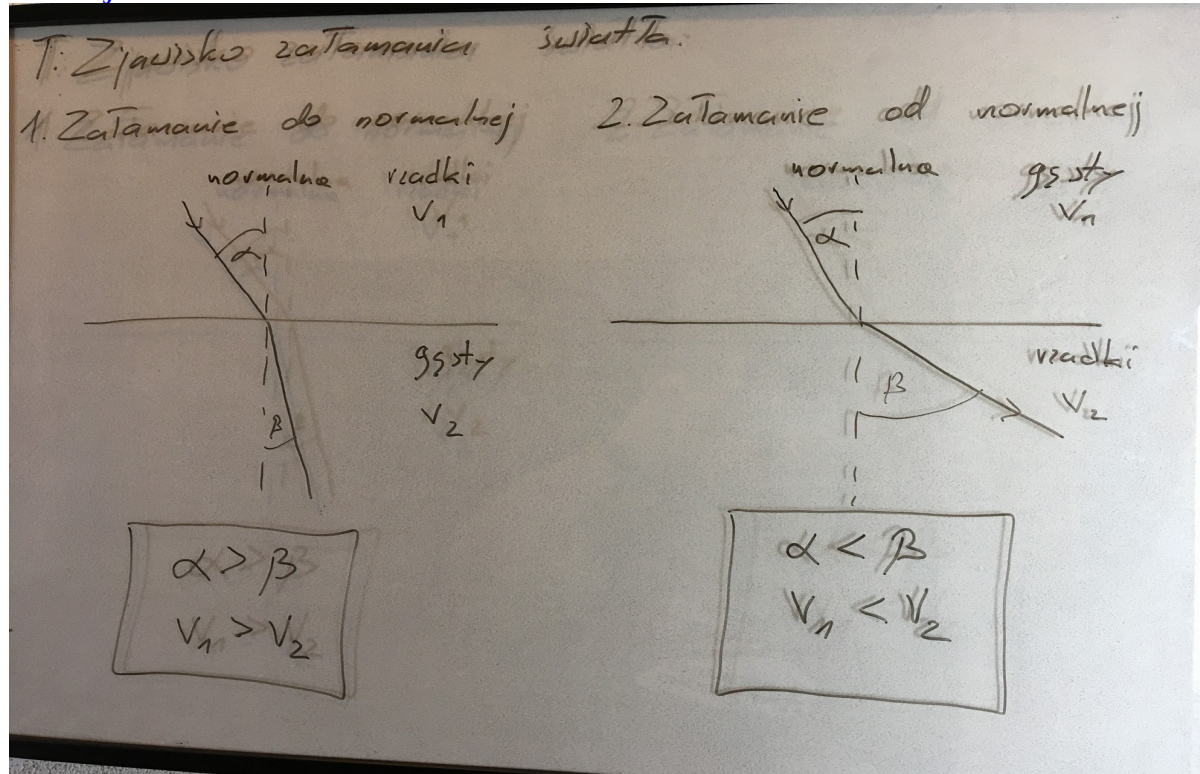 T: Zjawisko załamania światła.
1. Załamanie do normalnej
normalna rzadki
V₁
α
gęsty
V₂
β
α > β
V₁ > V₂
2. Załamanie od normalnej
normalna gęsty
V₁
α
rzadki
β
V₂
α < β
V₁ < V₂